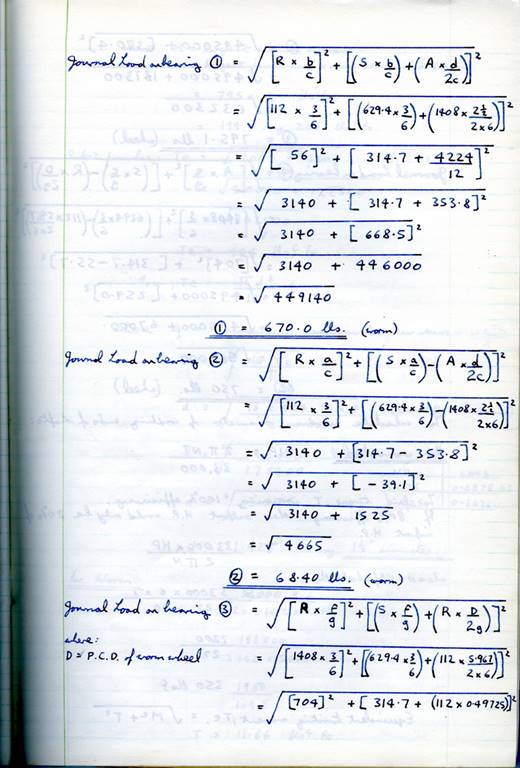 Journal Load on bearing ① = √[R × b/c]² + [(S × b/c) + (A × d/2c)]²
= √[112 × 3/6]² + [(629.4 × 3/6) + (1408 × 2½/2×6)]²
= √[56]² + [314.7 + 4224/12]²
= √3140 + [314.7 + 353.8]²
= √3140 + [668.5]²
= √3140 + 446000
= √449140
① = 670.0 lbs. (worm)
Journal Load on bearing ② = √[R × a/c]² + [(S × a/c) − (A × d/2c)]²
= √[112 × 3/6]² + [(629.4 × 3/6) − (1408 × 2½/2×6)]²
= √3140 + [314.7 − 353.8]²
= √3140 + [−39.1]²
= √3140 + 1525
= √4665
② = 68.40 lbs. (worm)
Journal Load on bearing ③ = √[A × f/g]² + [(S × f/g) + (R × D/2g)]²
where:
D = P.C.D. of worm wheel = √[1408 × 3/6]² + [(629.4 × 3/6) + (112 × 5.967/2×6)]²
= √[704]² + [314.7 + (112 × 0.49725)]²